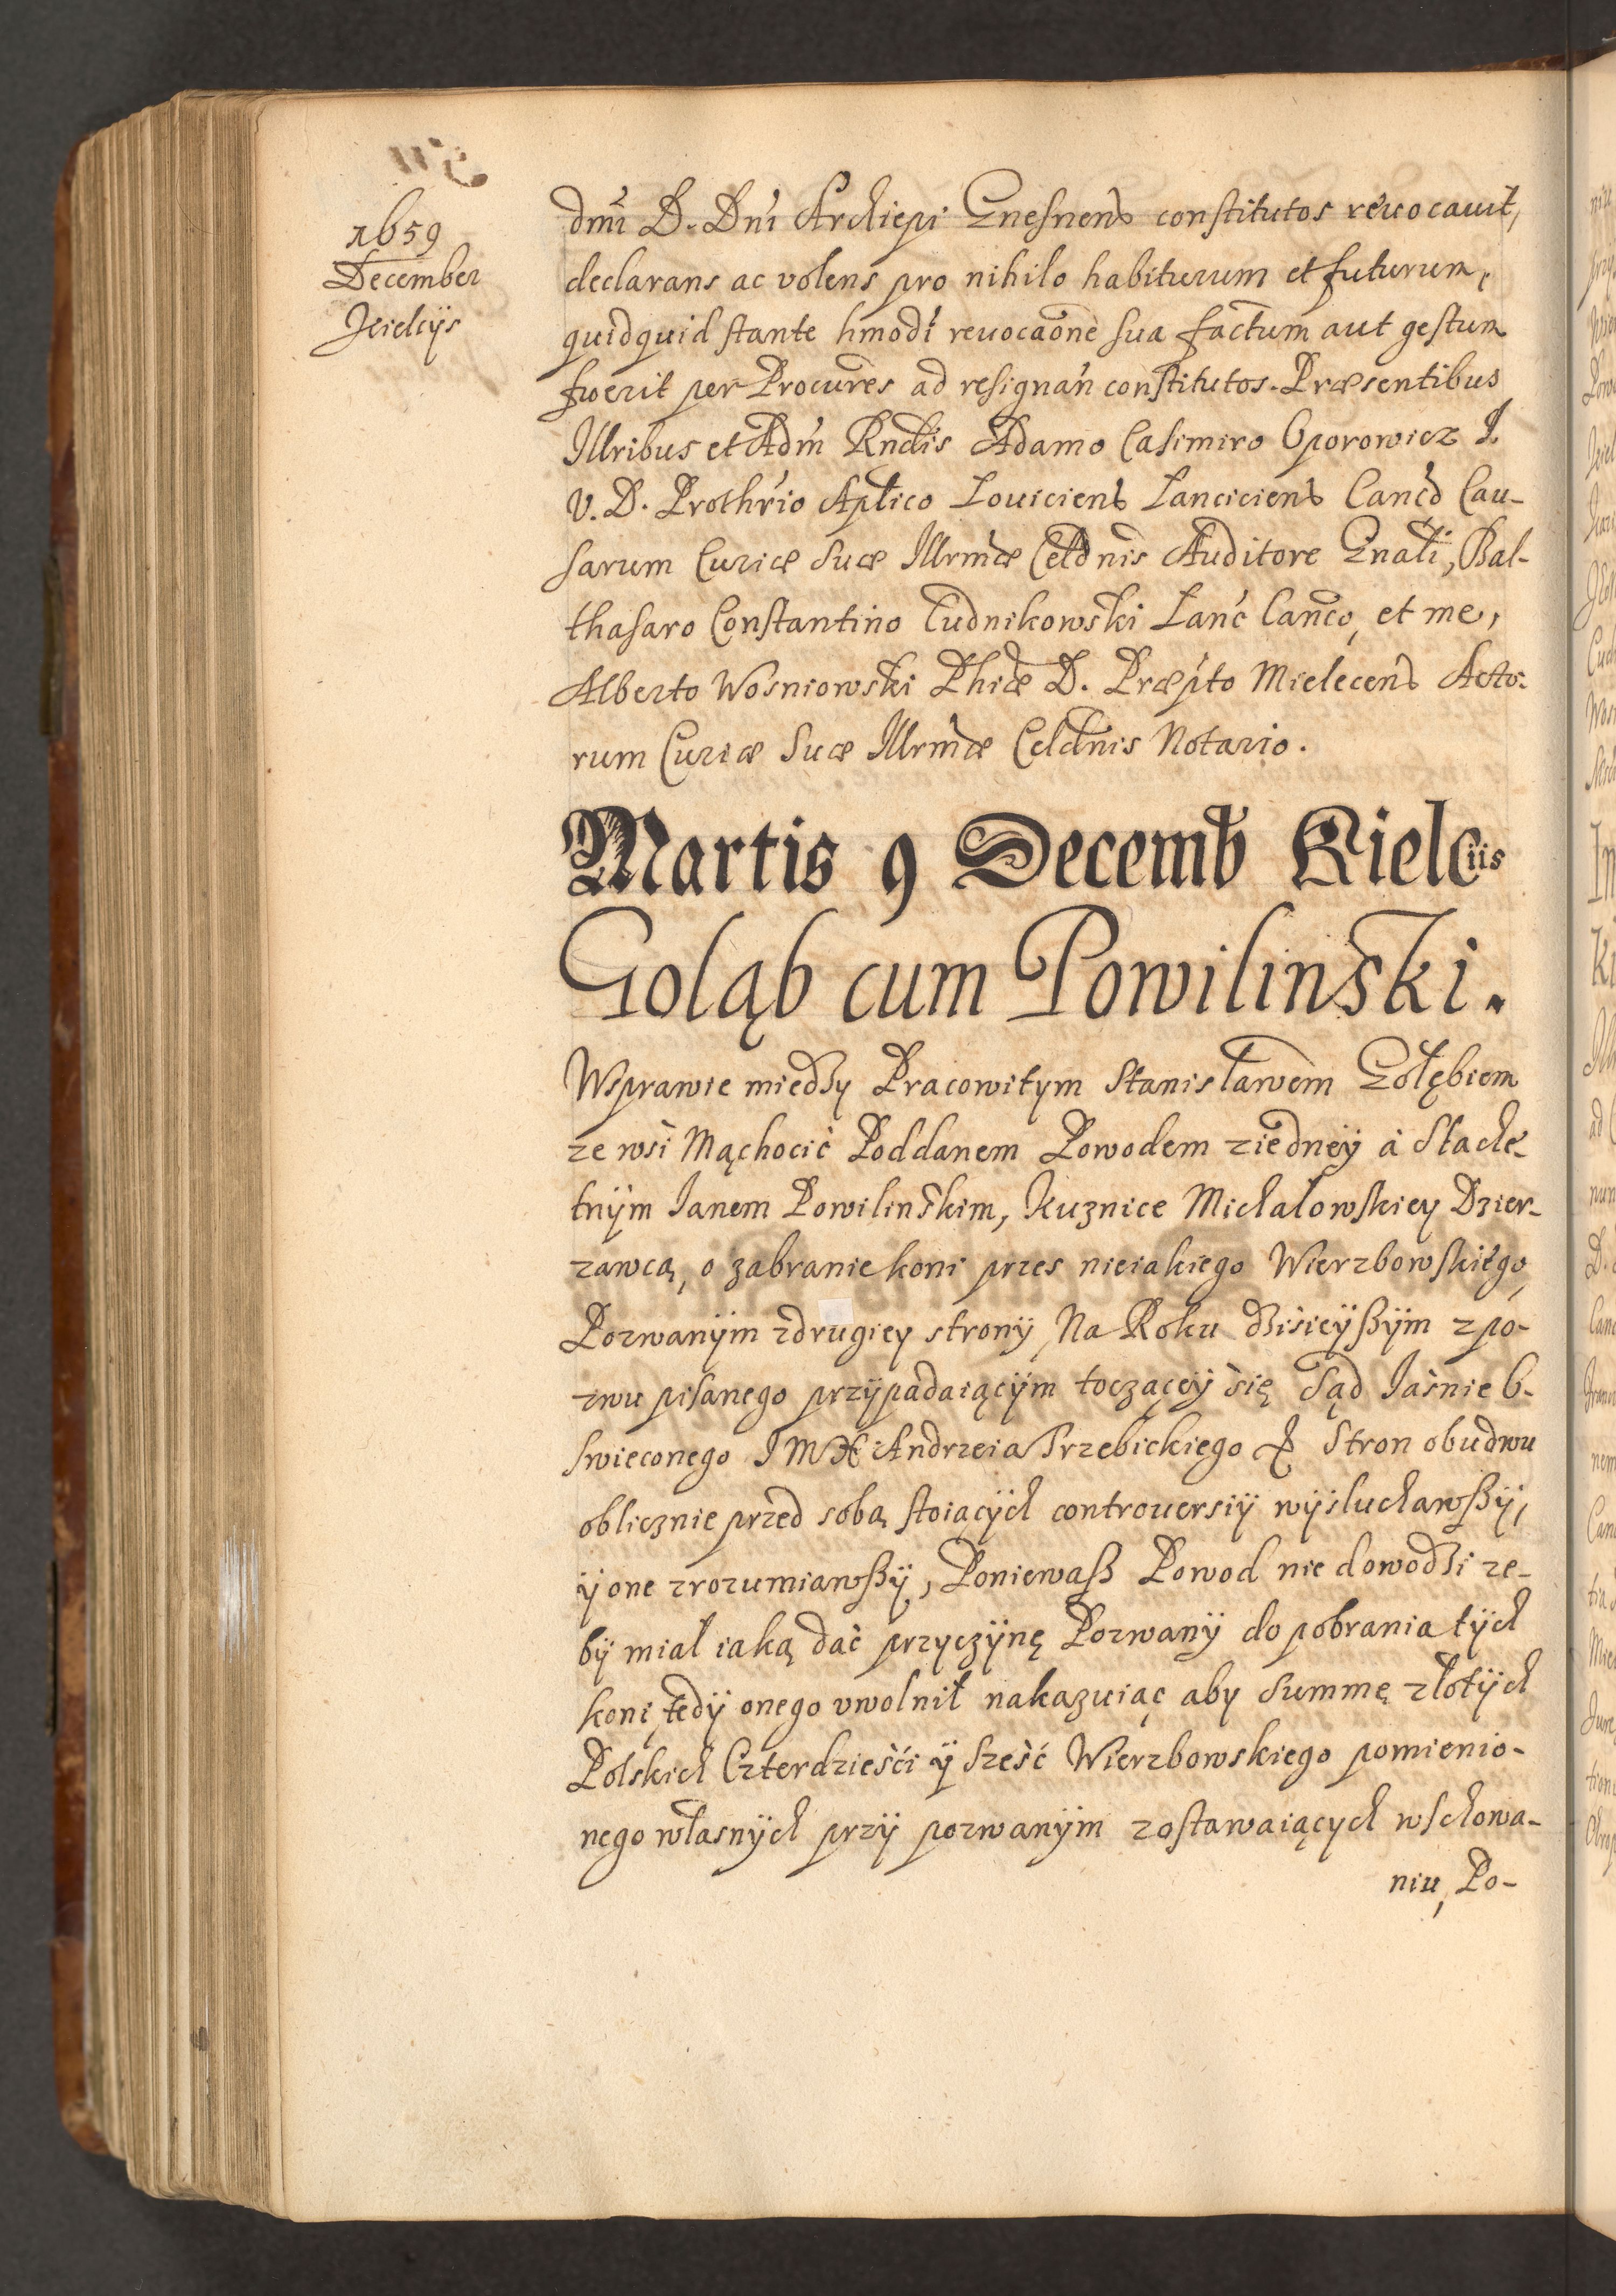 1659
December
Kielcijs
dmi D. Dni Archiepi Gnesnens constitutos reuocauit,
declarans ac volens pro nihilo habiturum et futurum,
quidquid stante hmodi reuocaone sua factum aut gestum
fuerit per Procures ad resignan constitutos. Præsentibus
Illribus et Adm Rndis Adamo Casimiro Oporowicz I.
V. D. Prothrio Aplico Louiciens Lanciciens Cancd Cau-
sarum Curiæ Suæ Illrmæ Celdnis Auditore Gnali, Bal-
thasaro Constantino Cudnikowski Lanc Canco, et me,
Alberto Wosniowski Phiæ D. Præpto Mielecens Acto-
rum Curiæ Suæ Illrmæ Celdnis Notario.
Martis 9 Decemb Kielciis
Goląb cum Powilinski.
Wsprawie miedzy Pracowitym Stanisławem Gołębiem
ze wsi Mąchocić Poddanem Powodem ziedney á Slache-
tnÿm Ianem Powilinskim, Kuznice Michałowskiey Dzier-
zawcą, o zabranie koni przes nieiakiego Wierzbowskiego,
Pozwanÿm zdrugiey stronÿ, Na Roku dzisieÿßÿm z po-
zwu pisanego przÿpadaiącÿm toczącey się Sąd Iaśnie O-
swieconego I M X Andrzeia Trzebickiego & Stron obudwu
oblicznie przed sobą stoiącÿch controuersiÿ wÿsluchawßÿ,
ÿ one zrozumiawßÿ, Poniewaß Powod nie dowodzi ze-
bÿ miał iaką dać przyczÿnę Pozwanÿ do pobrania tÿch
koni, tedÿ onego vwolnił nakazuiąc aby Summę złotÿch
Polskich Czterdzieśći ÿ Sześć Wierzbowskiego pomienio-
nego własnÿch przÿ pozwanÿm zostawaiących wschowa-
niu, Po-